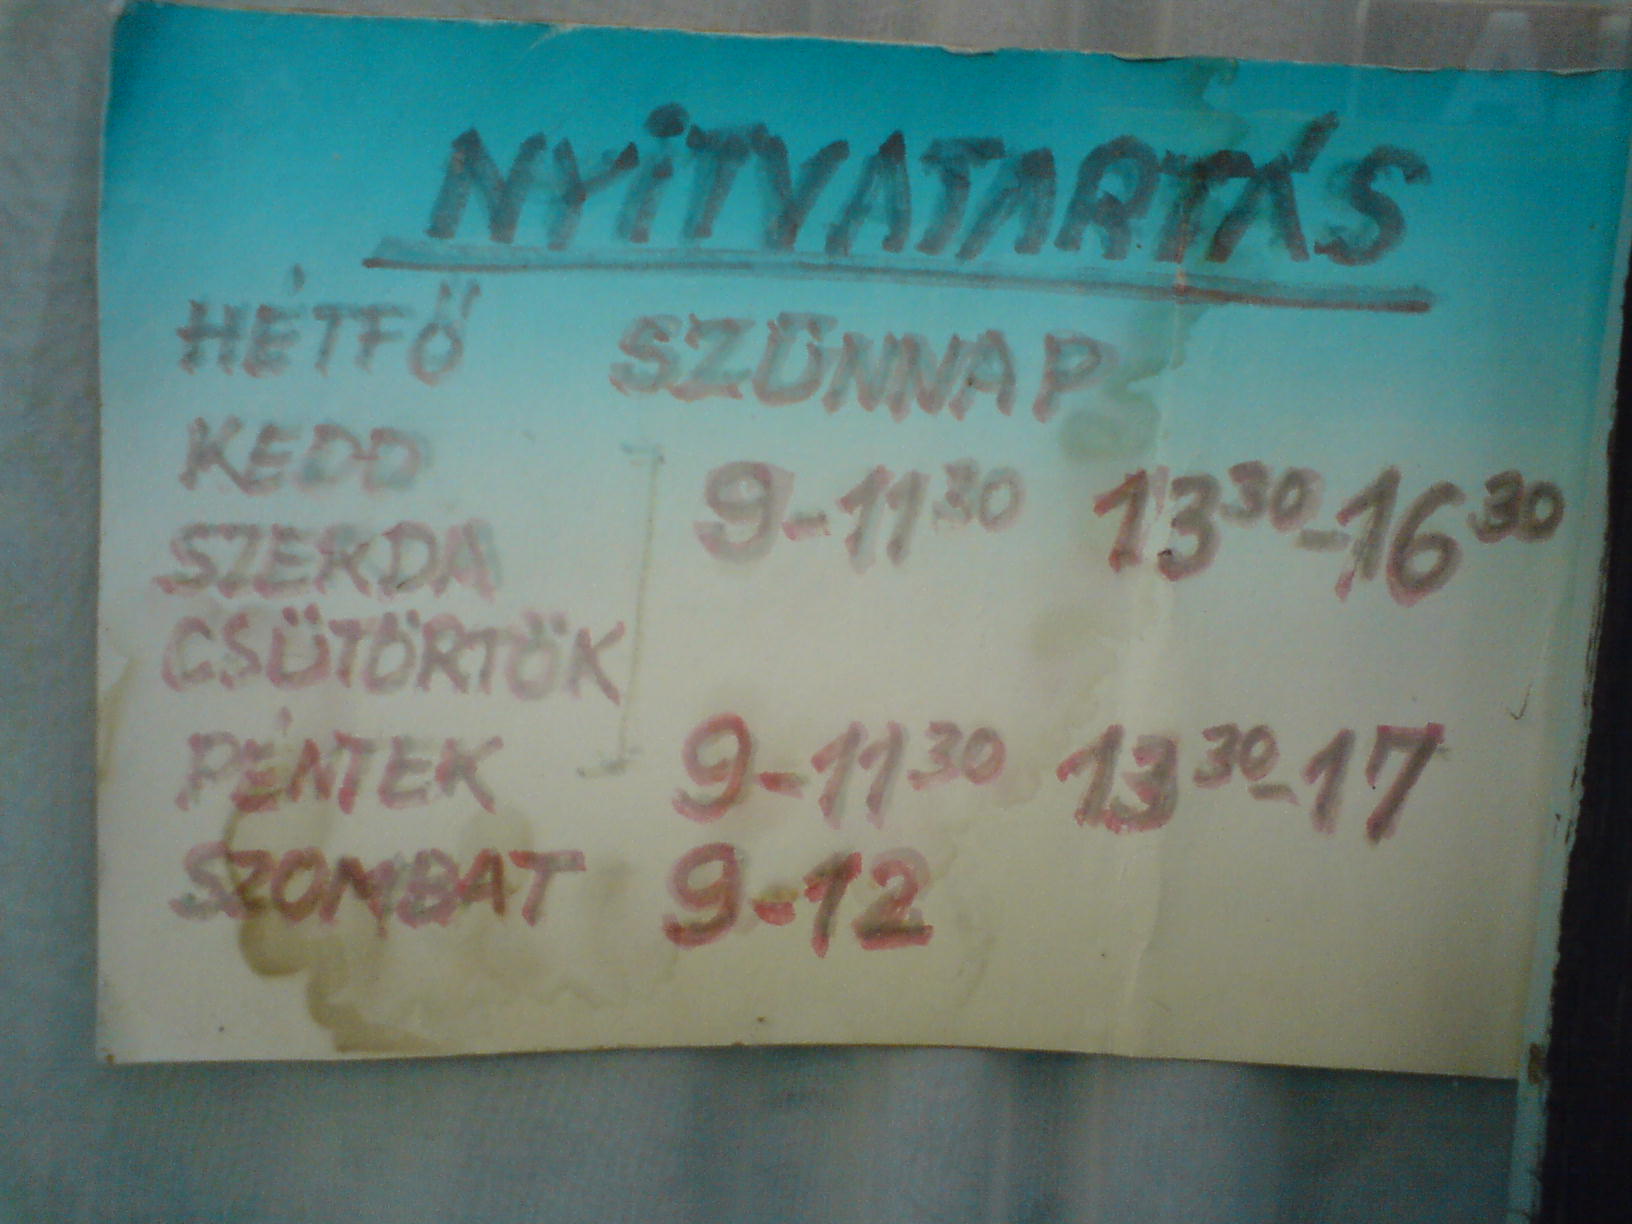 NYiTVATARTÁS
HÉTFŐ SZŰNNAP
KEDD 9-11³⁰ 13³⁰-16³⁰
SZERDA
CSÜTÖRTÖK
PÉNTEK 9-11³⁰ 13³⁰-17
SZOMBAT 9-12